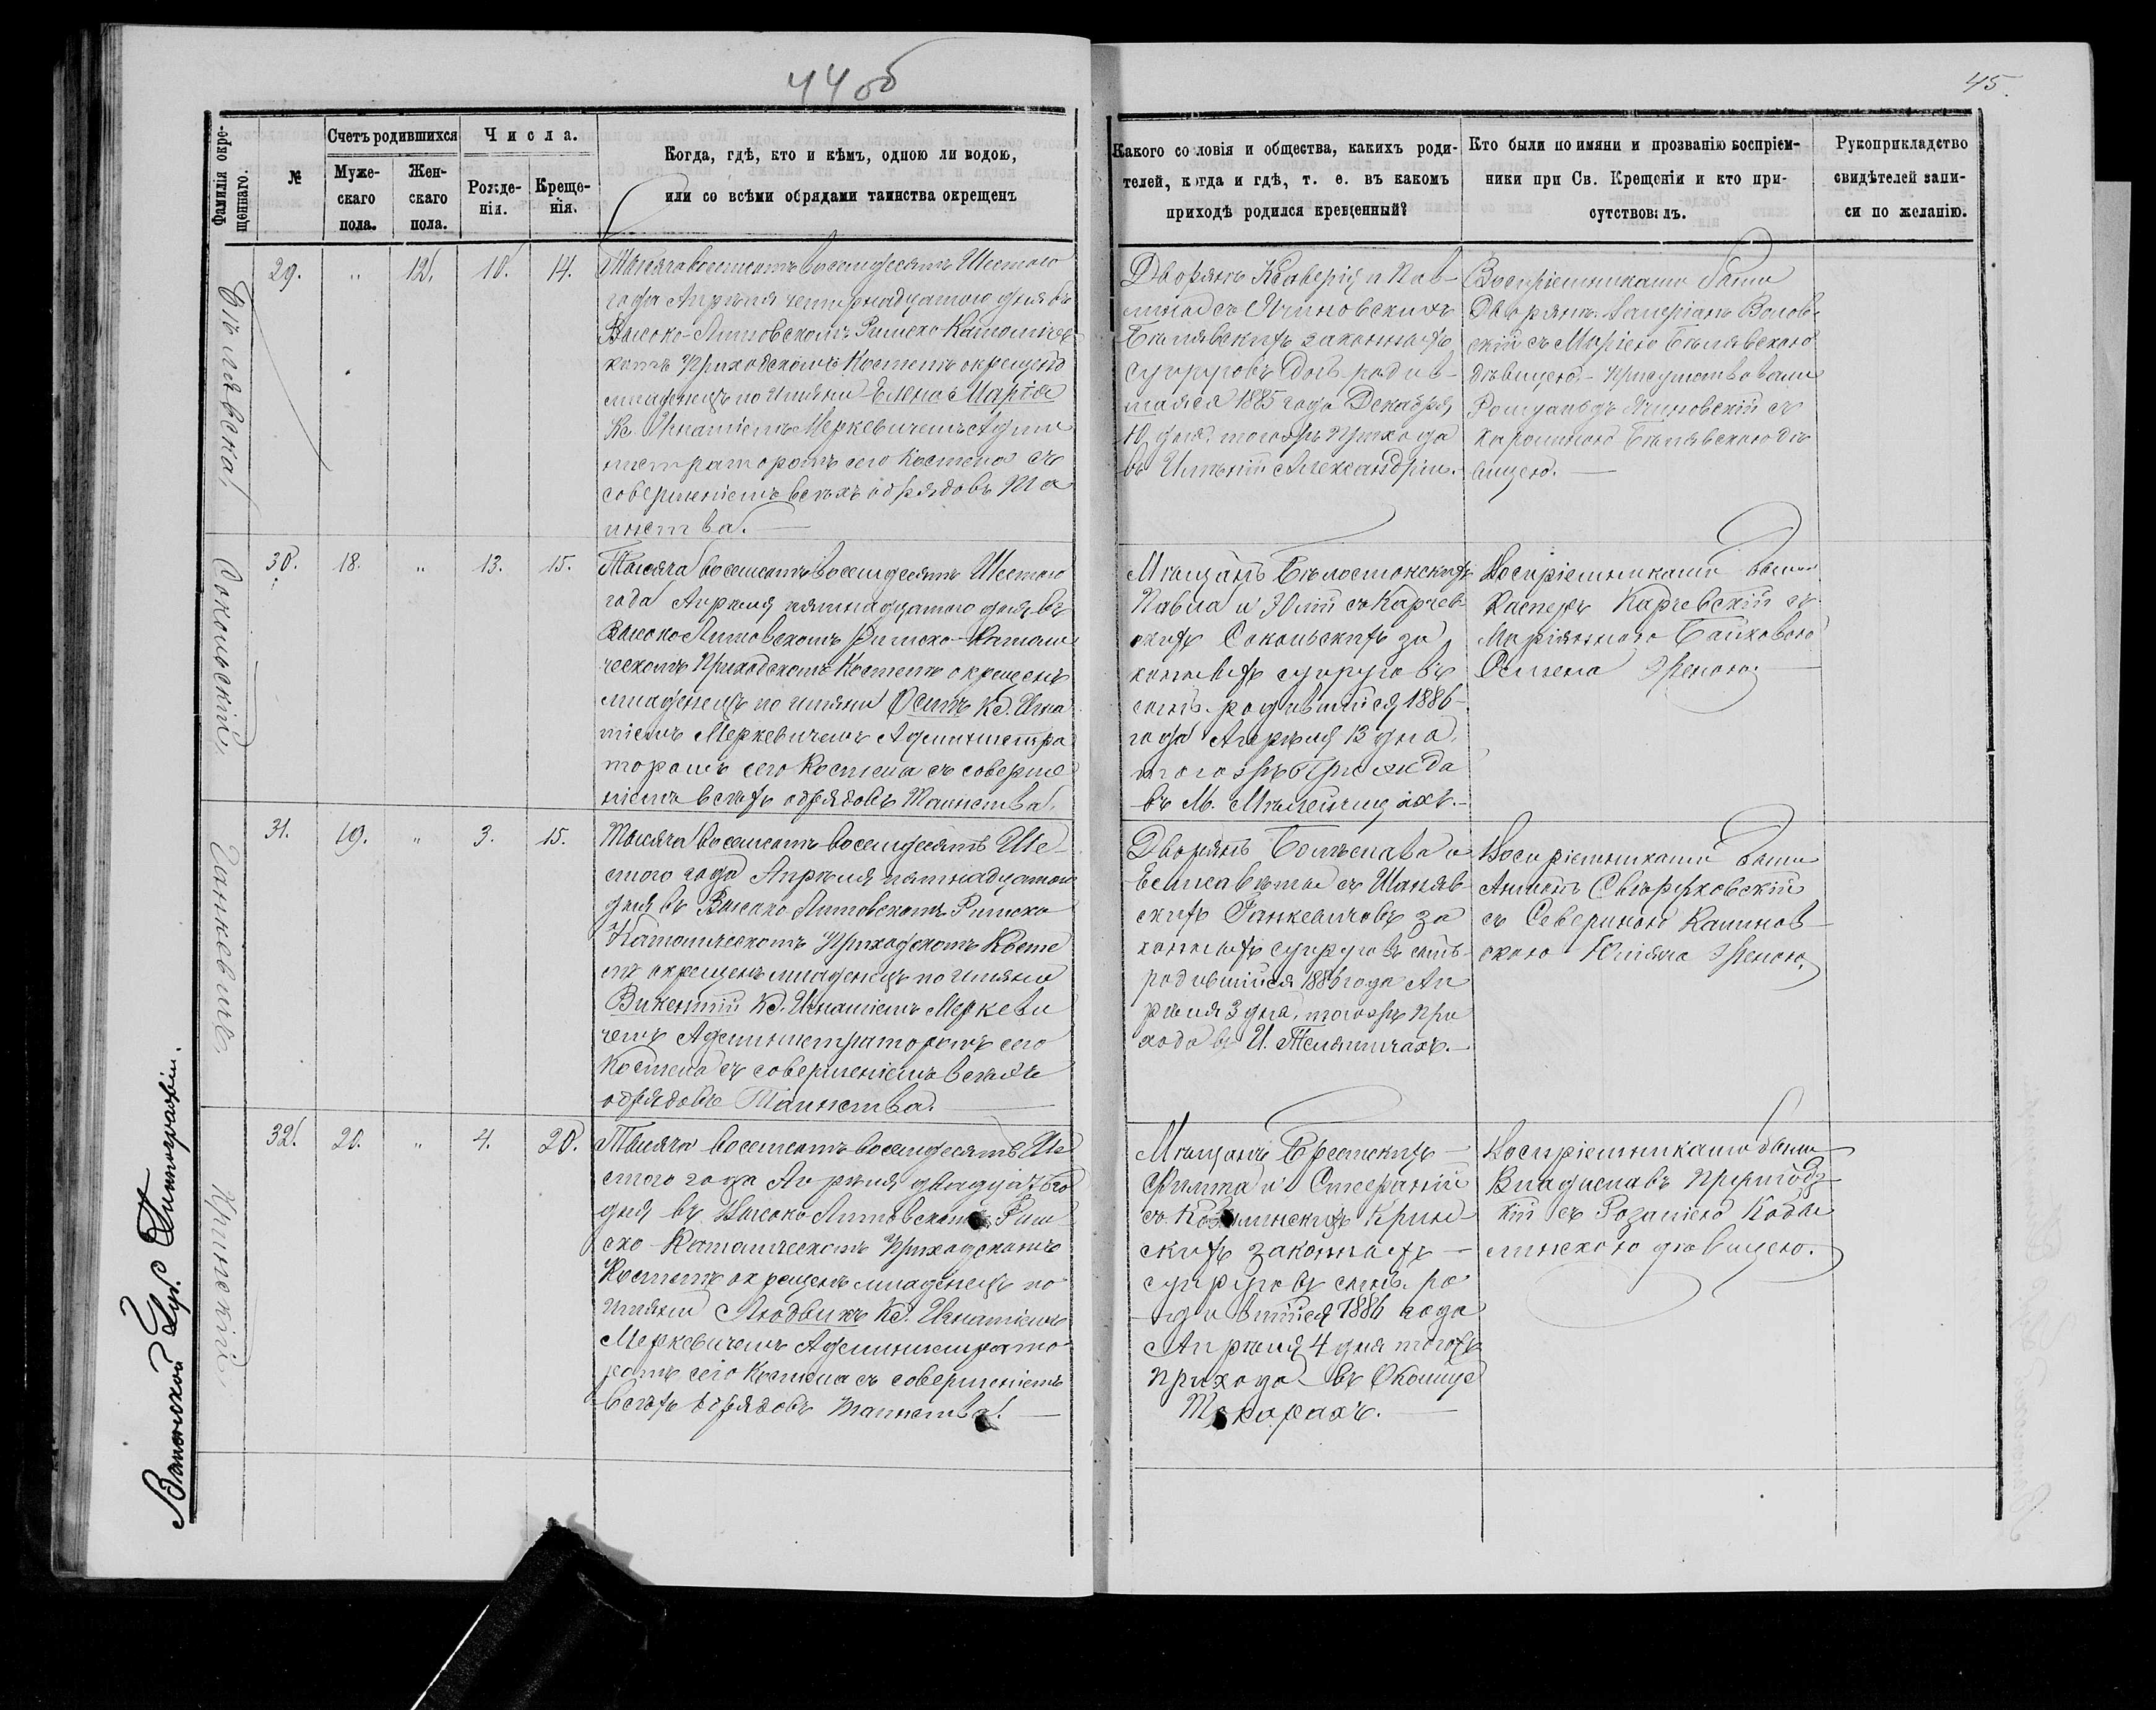 44 об
45.
Фамилія окре-
щеннаго.
№
Счетъ родившихся
Муже-
скаго
пола.
Жен-
скаго
пола.
Числа.
Рожде-
нія.
Креще-
нія.
Когда, гдѣ, кто и кѣмъ, одною ли водою,
или со всѣми обрядами таинства окрещенъ
Какого сословія и общества, какихъ роди-
телей, когда и гдѣ, т. е. въ какомъ
приходѣ родился крещенный?
Кто были по имяни и прозванію воспріем-
ники при Св. Крещеніи и кто при-
сутствовалъ.
Рукоприкладство
свидѣтелей запи-
си по желанію.
Бѣлявска
29.
"
12.
10.
14.
Тысяча восемсотъ восемдесятъ Шестого
года Апрѣля четырнадцатого дня въ
Высоко-Литовскомъ Римско-Католичес
комъ Приходскомъ Костелѣ окрещено
младенецъ по имяни Елена Марія
Кс. Игнатіемъ Меркевичемъ Адми
нистраторомъ сего Костела съ
совершеніемъ всѣхъ обрядовъ Та
инства.
Дворянъ Ксаверія и Пав-
лины съ Ячиновскихъ
Бѣлявскихъ законныхъ
супруговъ дочь родив-
шаяся 1885 года Декабря
10 дня тогожъ Прихода
въ Имѣніи Александріи.
Воспріемниками были
Дворянъ Валеріанъ Волов-
скій съ Маріею Бѣлявскою
дѣвицею. - Присутствовали
Ромуальдъ Ячиновскій съ
Каролиною Бѣлявскою дѣ
вицею.
Сокольскій
30.
18.
"
13.
15.
Тысяча восемсотъ восемдесятъ Шестого
года Апрѣля пятнадцатого дня въ
Высоко Литовскомъ Римско-Католи
ческомъ Приходскомъ Костелѣ окрещенъ
младенецъ по имяни Осипъ Кс. Игна
тіемъ Меркевичемъ Администра
торомъ сего Костела съ соверше
ніемъ всѣхъ обрядовъ Таинства.
Мѣщанъ Бѣлостокскихъ
Павла и Юліи съ Карчев
скихъ Сокольскихъ за
конныхъ супруговъ
сынъ родившійся 1886
года Апрѣля 13 дня
тогожъ Прихода
въ М. Мѣлейчицахъ.
Воспріемниками были
Касперъ Карчевскій съ
Маріянною Байковою
женою.
Ганкевичъ.
31.
19.
"
3.
15.
Тысяча восемсотъ восемдесятъ Ше-
стого года Апрѣля пятнадцатого
дня въ Высоко Литовскомъ Римско
Католическомъ Приходскомъ Косте
лѣ окрещенъ младенецъ по имяни
Викентій Кс. Игнатіемъ Меркеви
чемъ Администраторомъ сего
Костела съ совершеніемъ всѣхъ
обрядовъ Таинства.
Дворянъ Болеслава и
Елисаветы съ Шаняв
скихъ Ганкевичовъ за
конныхъ супруговъ сынъ
родившійся 1886 года Ап
рѣля 3 дня, тогожъ При
хода въ И. Телятичахъ.
Воспріемниками были
Антонъ Свѣржковскій
съ Севериною Калинов-
скою Юліяна женою.
Кринскій
32.
20.
"
4.
20.
Тысяча восемсотъ восемдесятъ Ше
стого года Апрѣля двадцатого
дня въ Высоко Литовскомъ Рим
ско-Католическомъ Приходскомъ
Костелѣ окрещенъ младенецъ по
имяни Людвикъ Кс. Игнатіемъ
Меркевичемъ Администрато
ромъ сего Костела съ совершеніемъ
всѣхъ обрядовъ Таинства.
Мѣщанъ Брестскихъ
и Стефаніи
съ Крин
скихъ законныхъ
супруговъ сынъ ро
дившійся 1886 года
Апрѣля 4 дня тогожъ
прихода въ Околице
Токарахъ.
Воспріемниками были
Владиславъ
съ Розаліею Кобы
линскою дѣвицею.
Виленской Губ. Типографіи.